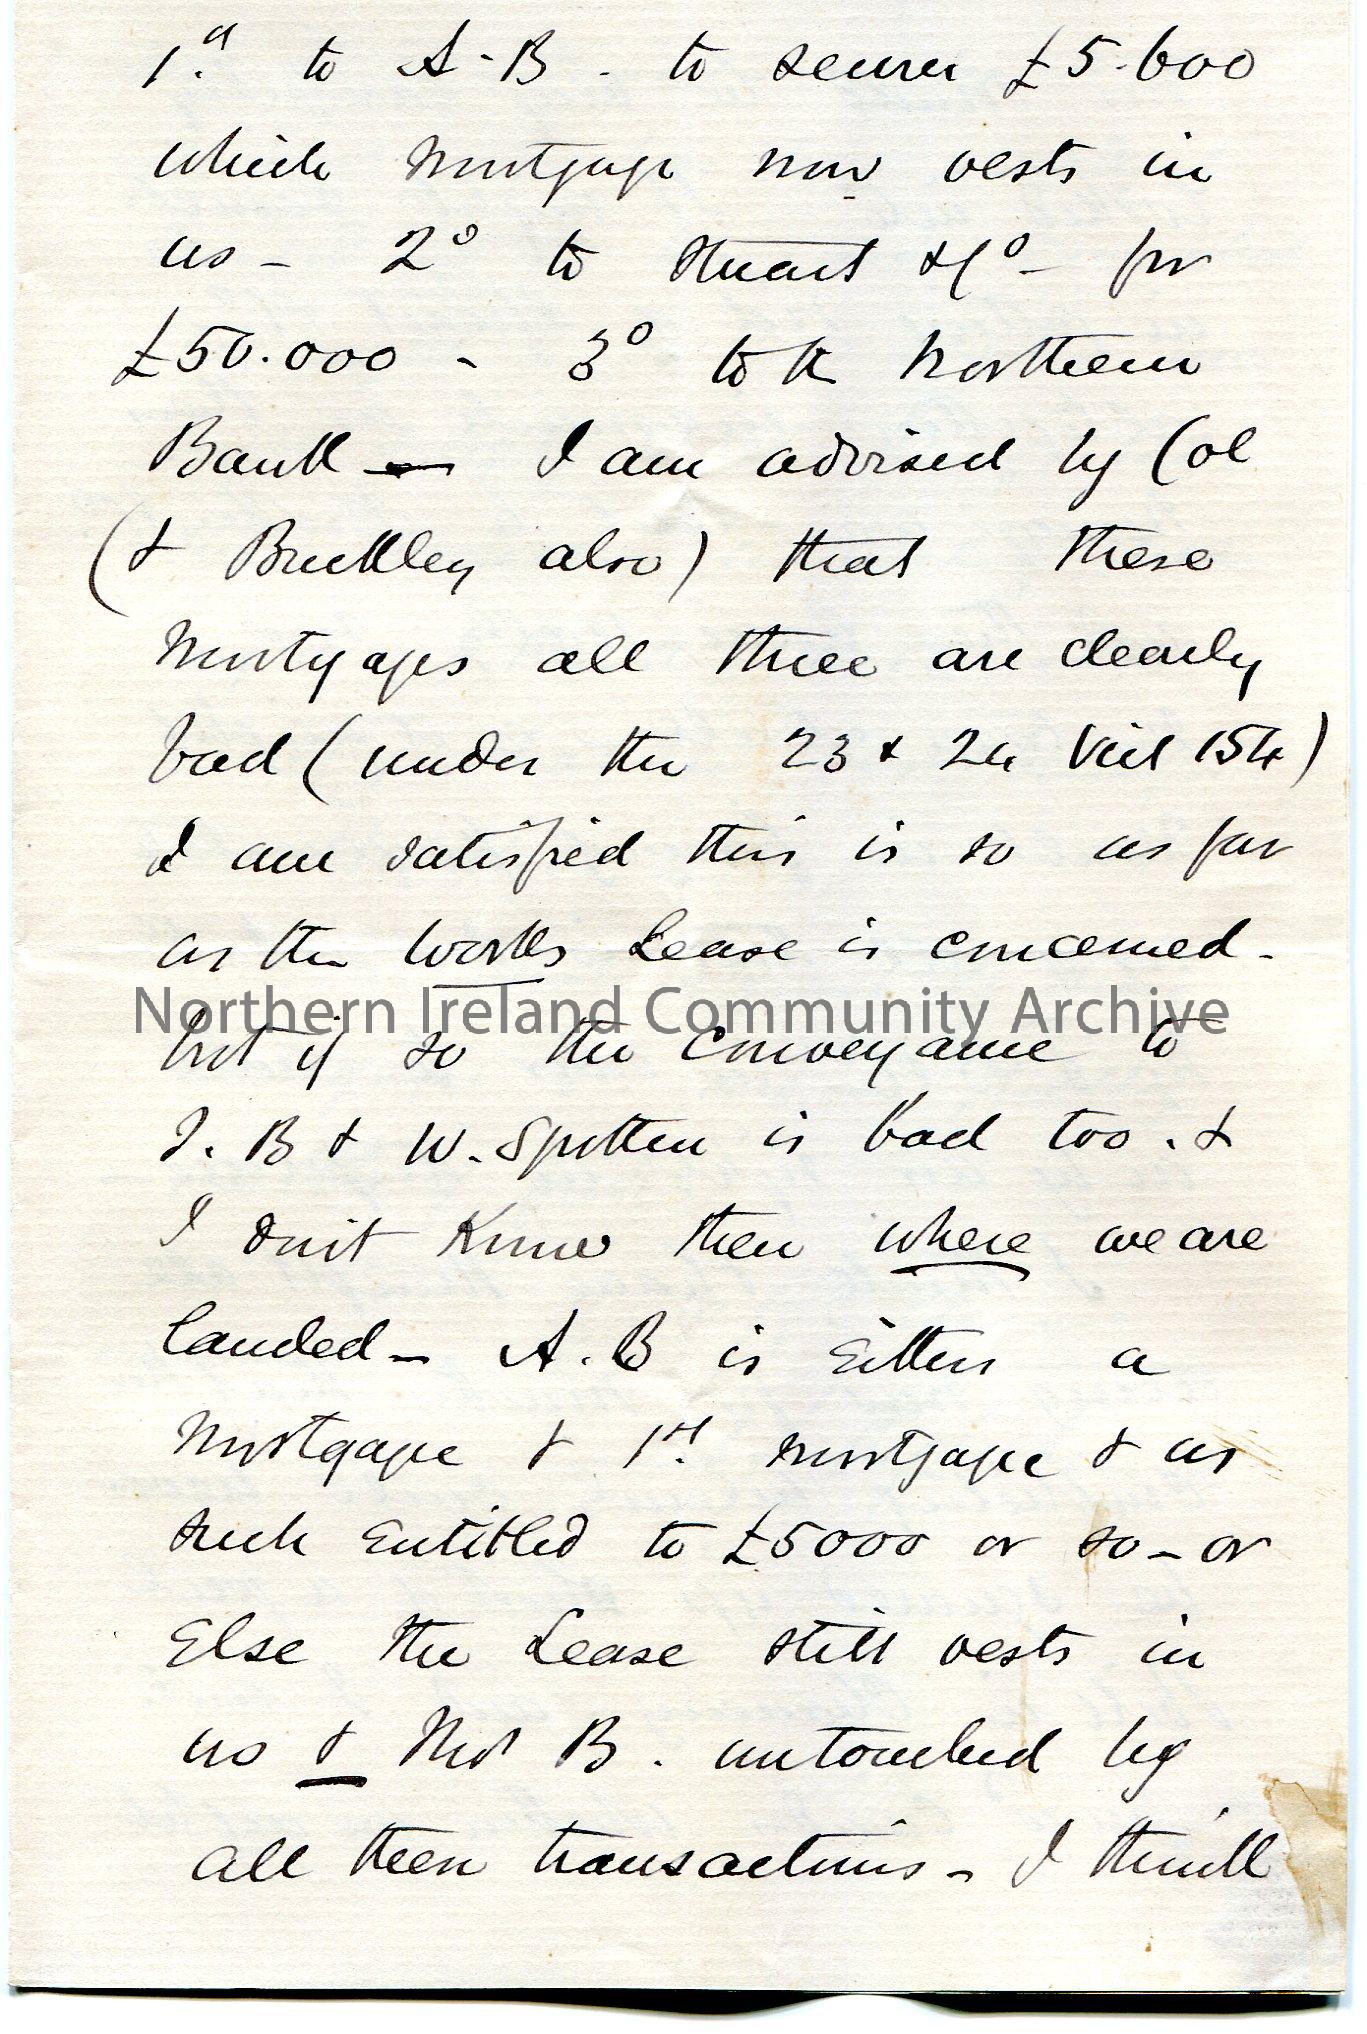 1.º to A-B - to secure £5.600
which mortgage now vests in
us - 2º to Stuart & Cº - for
£50.000 - 3º to the Northern
Bank - I am advised by Col
(& Buckley also) that these
Mortgages all three are clearly
bad (under the 23 & 24 Vict 154)
I am satisfied this is so as far
as the Works Lease is concerned -
Northern Ireland Community Archive
but if so the Conveyance to
J. B & W. Spotten is bad too . &
I don't know then where we are
landed - A.B is Either a
Mortgagee & 1st mortgagee & as
such Entitled to £5000 or so - or
Else the Lease still vests in
us & Mrs B . untouched by
all these transactions - I think